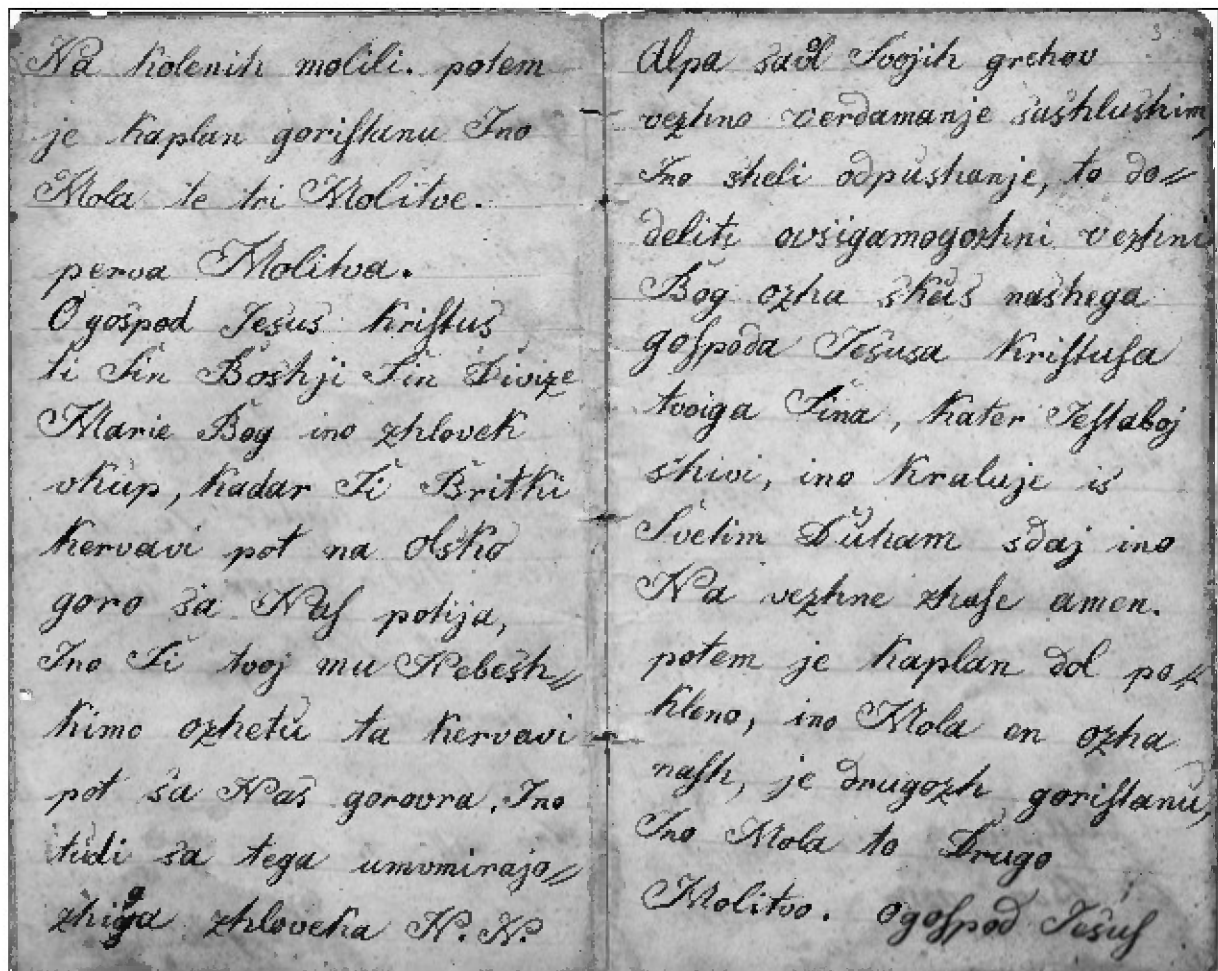 Na kolenih molili. potem
je kaplan goriſtanu Ino
Mola te tri Molitve.
perva Molitva.
O gośpod Jeśuś kriſtuś
ti Sin Boshji Sin Divize
Marie Bog ino zhlovek
vkŭp, kadar Ti Britki
kervavi pot na Olśko
goro śa Naſ potija,
Ino Ti tvoj mu Nebeśh⸗
kimo ozhetŭ ta kervavi
pot śa Naś gorovra, Ino
tŭdi śa tega umvmirajo⸗
zhiga zhloveka N. N.
3
Alpa śavl Svojih grehov
vezhno verdamanje śaśhluśhim,
Ino śheli odpŭshanje, to do⸗
deliti ovśigamogozhni vezhni
Bog ozha śkŭś naśhega
goſpoda Jeśusa Kriſtuſa
tvoiga Sina, kater Seſtaboj
śhivi, ino kraluje iś
Svetim Dŭham śdaj ino
Na vezhne zhaſe amen.
potem je kaplan dol po⸗
kleno, ino Mola en ozha
naſh, je drugozh goriſtanu,
Ino Mola to Drugo
Molitvo. Ogoſpod Jeśuſ